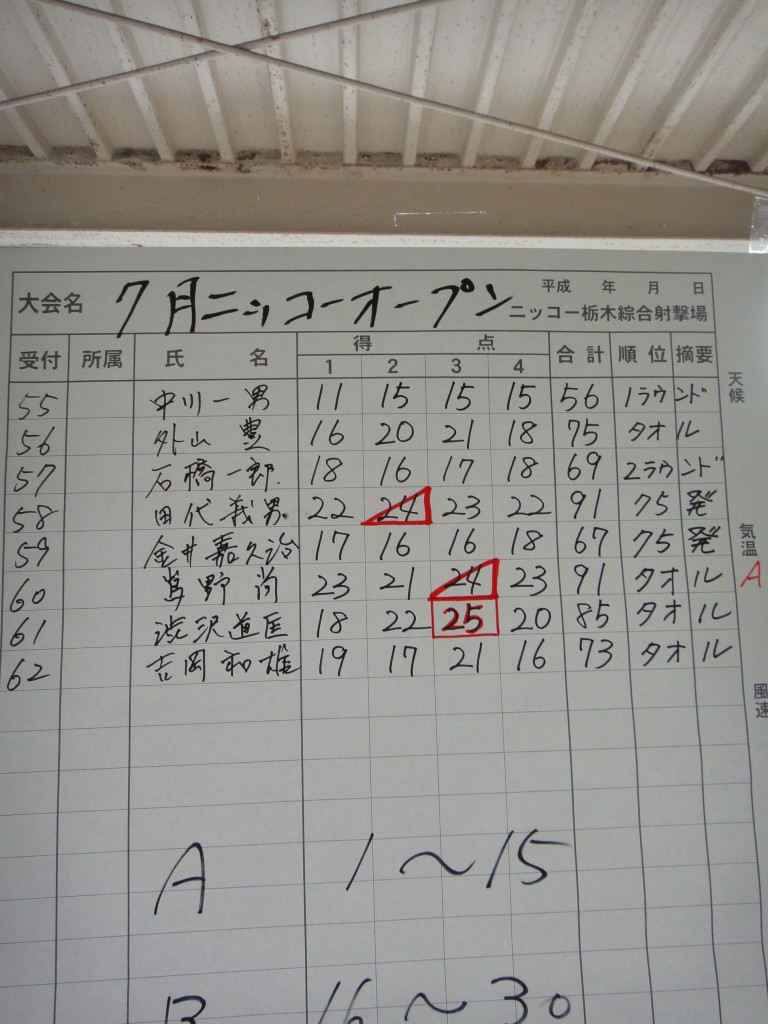 大会名 7月ニッコーオープン 平成 年 月 日
ニッコー栃木綜合射撃場
受付 所属 氏 名 得 点 合計 順位 摘要
1 2 3 4
天候
55 中川一男 11 15 15 15 56 1ラウンド
56 外山 豊 16 20 21 18 75 タオル
57 石橋一郎 18 16 17 18 69 2ラウンド
58 田代義男 22 24 23 22 91 75発
気温
59 金井嘉久治 17 16 16 18 67 75発
60 野 尚 23 21 24 23 91 タオル A
61 渋沢道匡 18 22 25 20 85 タオル
62 吉岡和雄 19 17 21 16 73 タオル
風速
A 1〜15
B 16〜30